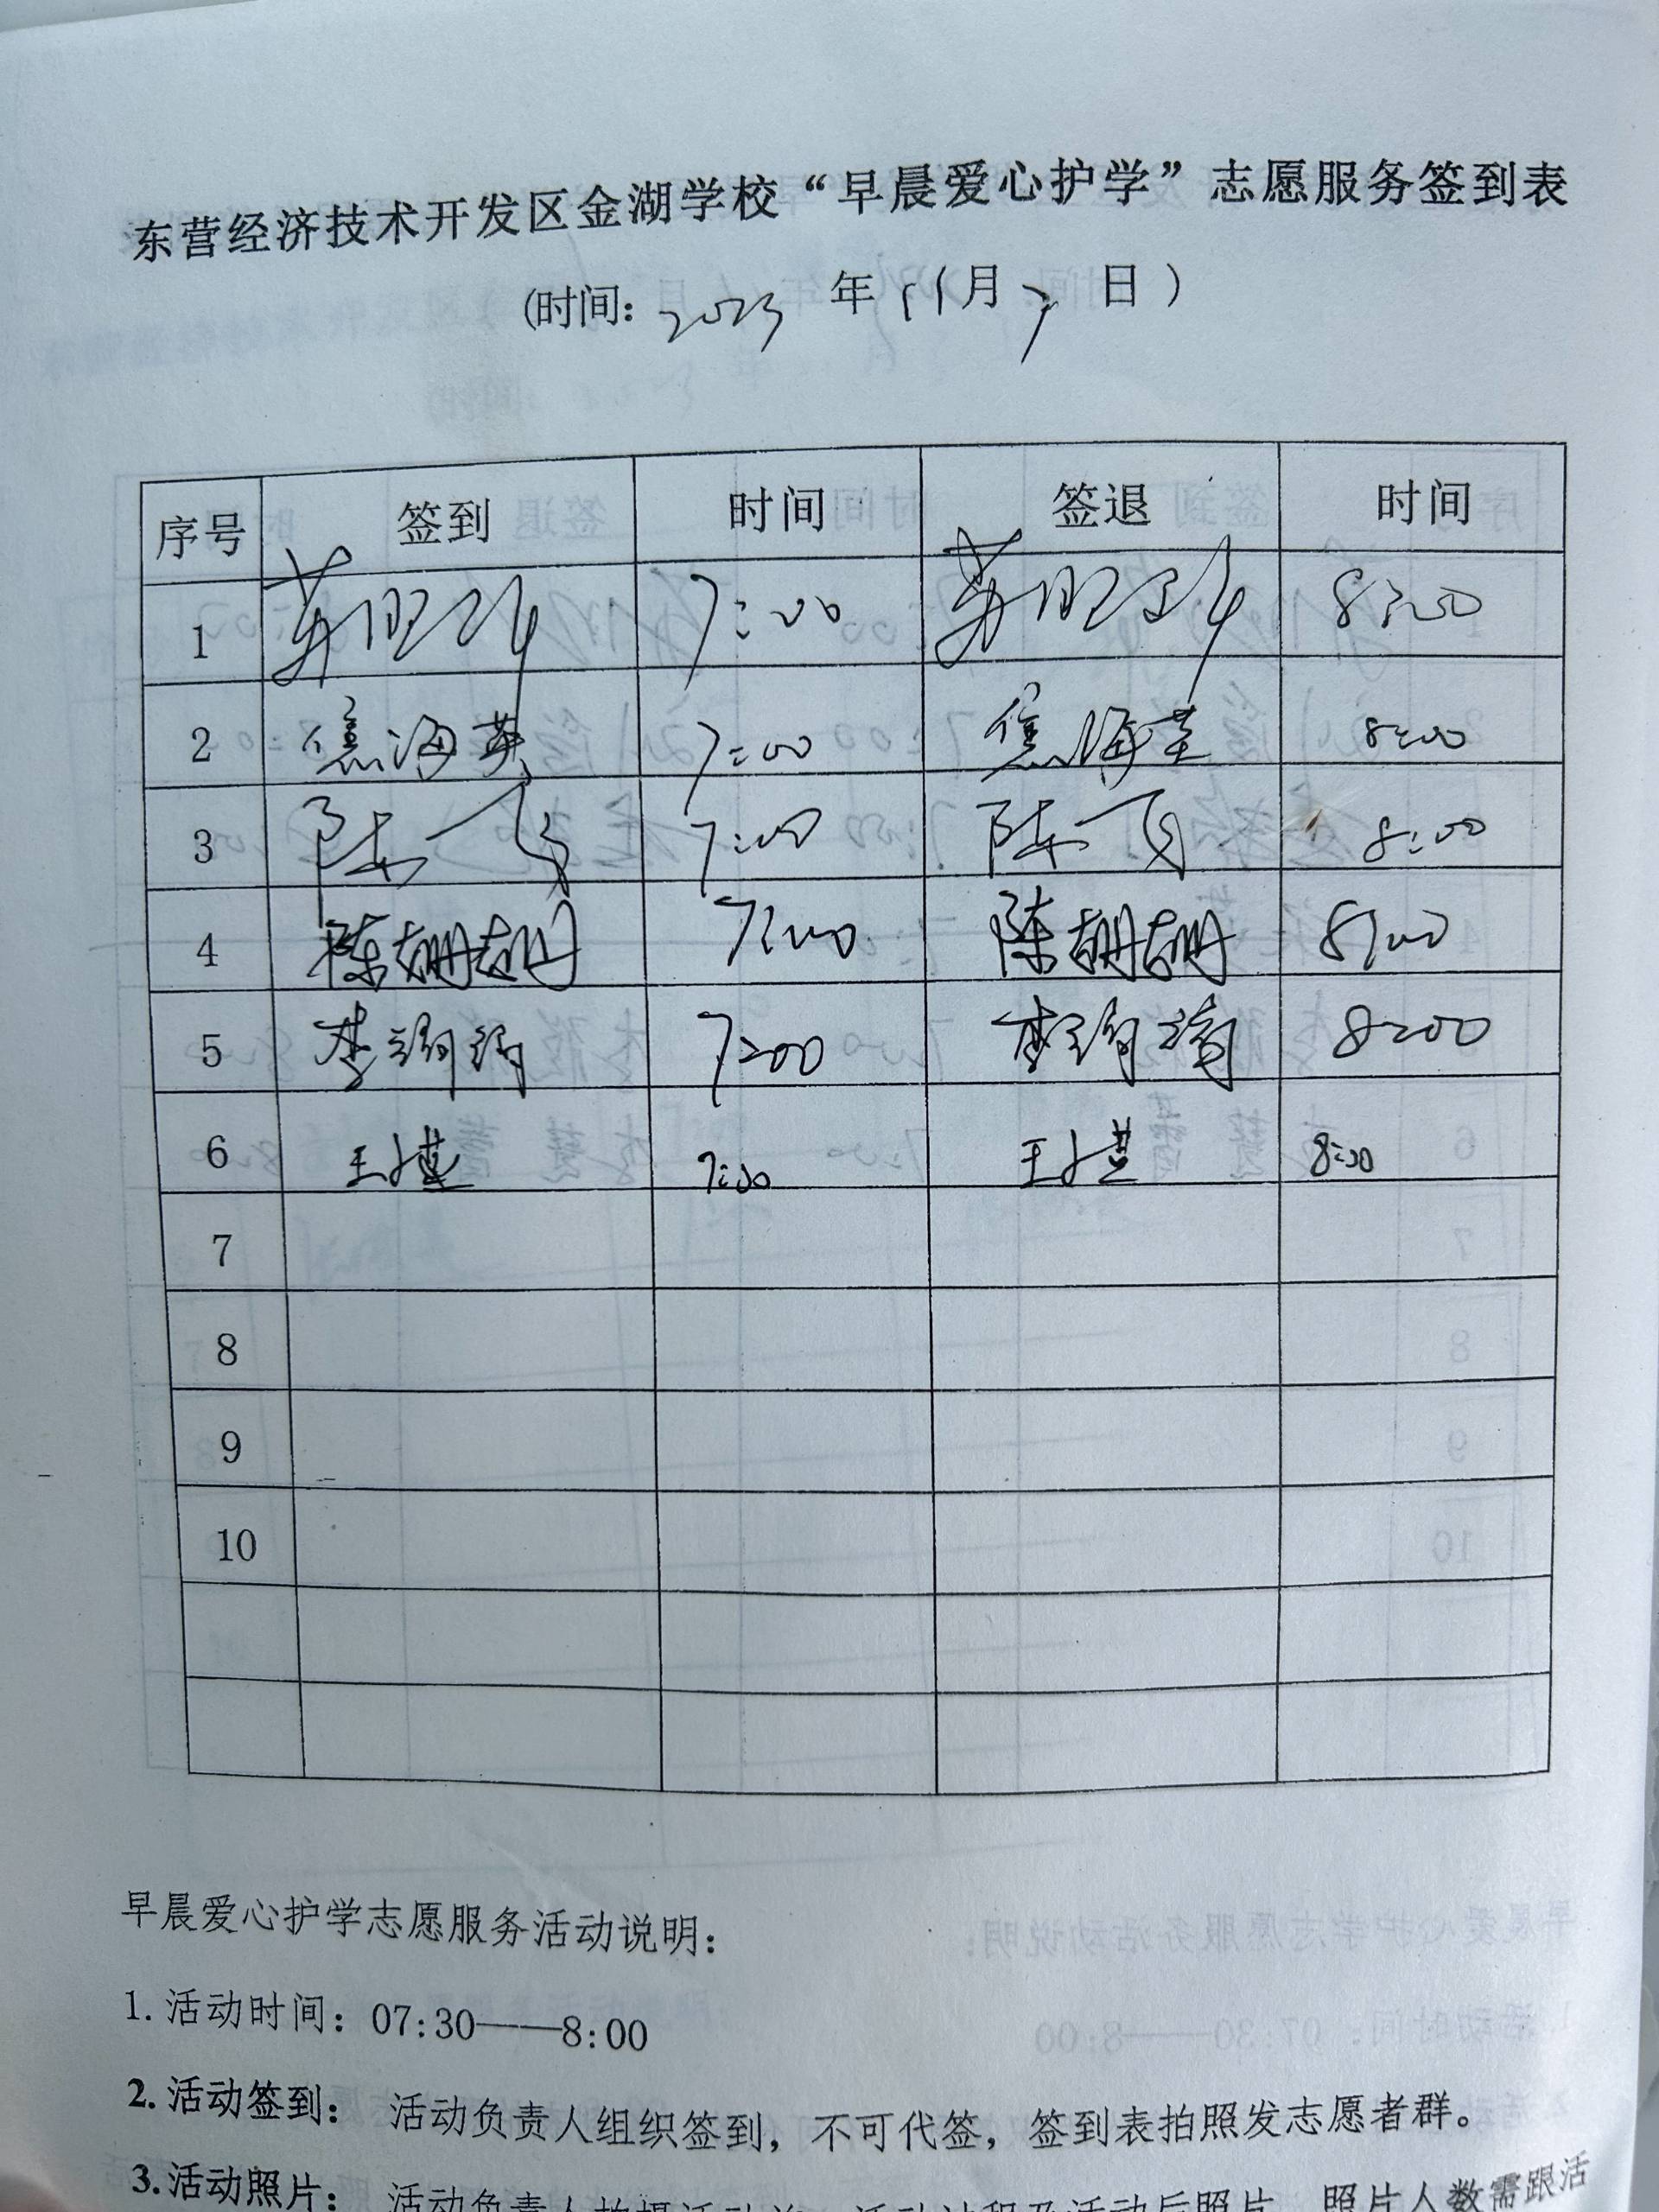 东营经济技术开发区金湖学校“早晨爱心护学”志愿服务签到表
(时间: 2023 年 11月 7 日 )
序号 签到 时间 签退 时间
1 7:00 8:00
2 焦海英 7:00 焦海英 8:00
3 陈 7:00 陈 8:00
4 陈珊珊 7:00 陈珊珊 8:00
5 李 7:00 李 8:00
6 王 7:00 王 8:00
7
8
9
10
早晨爱心护学志愿服务活动说明:
1.活动时间: 07:30——8:00
2.活动签到: 活动负责人组织签到,不可代签,签到表拍照发志愿者群。
3.活动照片: 活动负责人拍摄活动前、活动过程及活动后照片,照片人数需跟活